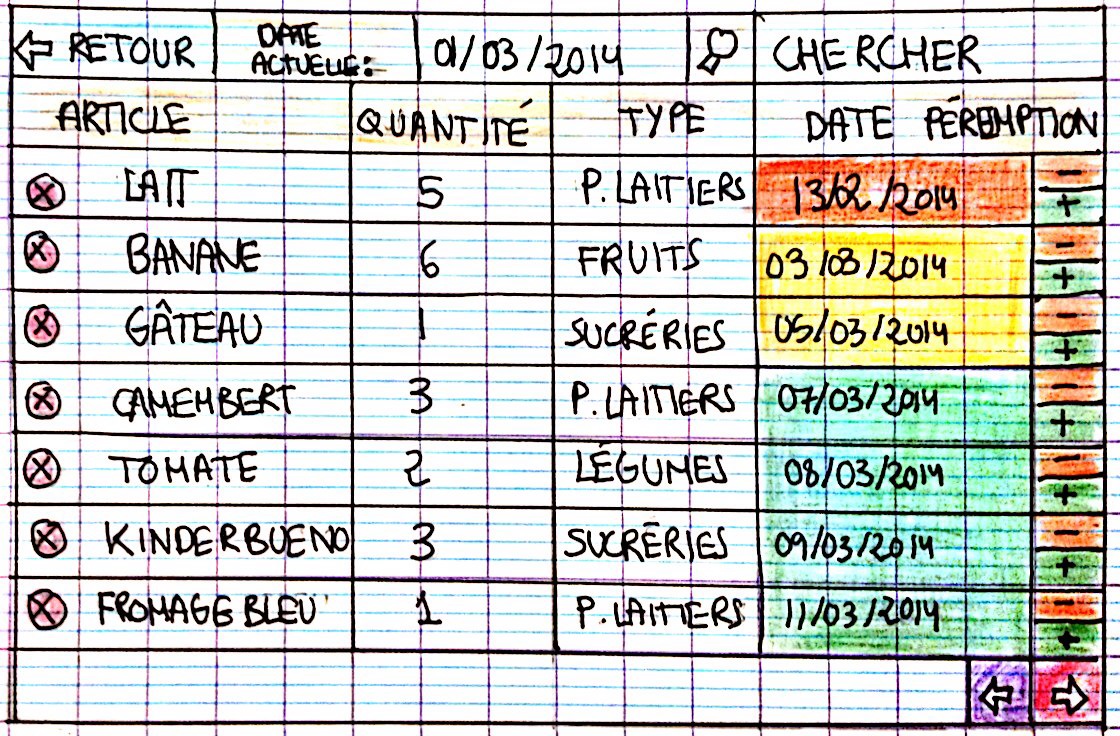 RETOUR DATE ACTUELLE: 01/03/2014 CHERCHER
ARTICLE QUANTITÉ TYPE DATE PÉREMPTION
LAIT 5 P. LAITIERS 13/02/2014 - +
BANANE 6 FRUITS 03/03/2014 - +
GÂTEAU 1 SUCRÉRIES 05/03/2014 - +
CAMEMBERT 3 P. LAITIERS 07/03/2014 - +
TOMATE 2 LÉGUMES 08/03/2014 - +
KINDERBUENO 3 SUCRÉRIES 09/03/2014 - +
FROMAGE BLEU 1 P. LAITIERS 11/03/2014 - +